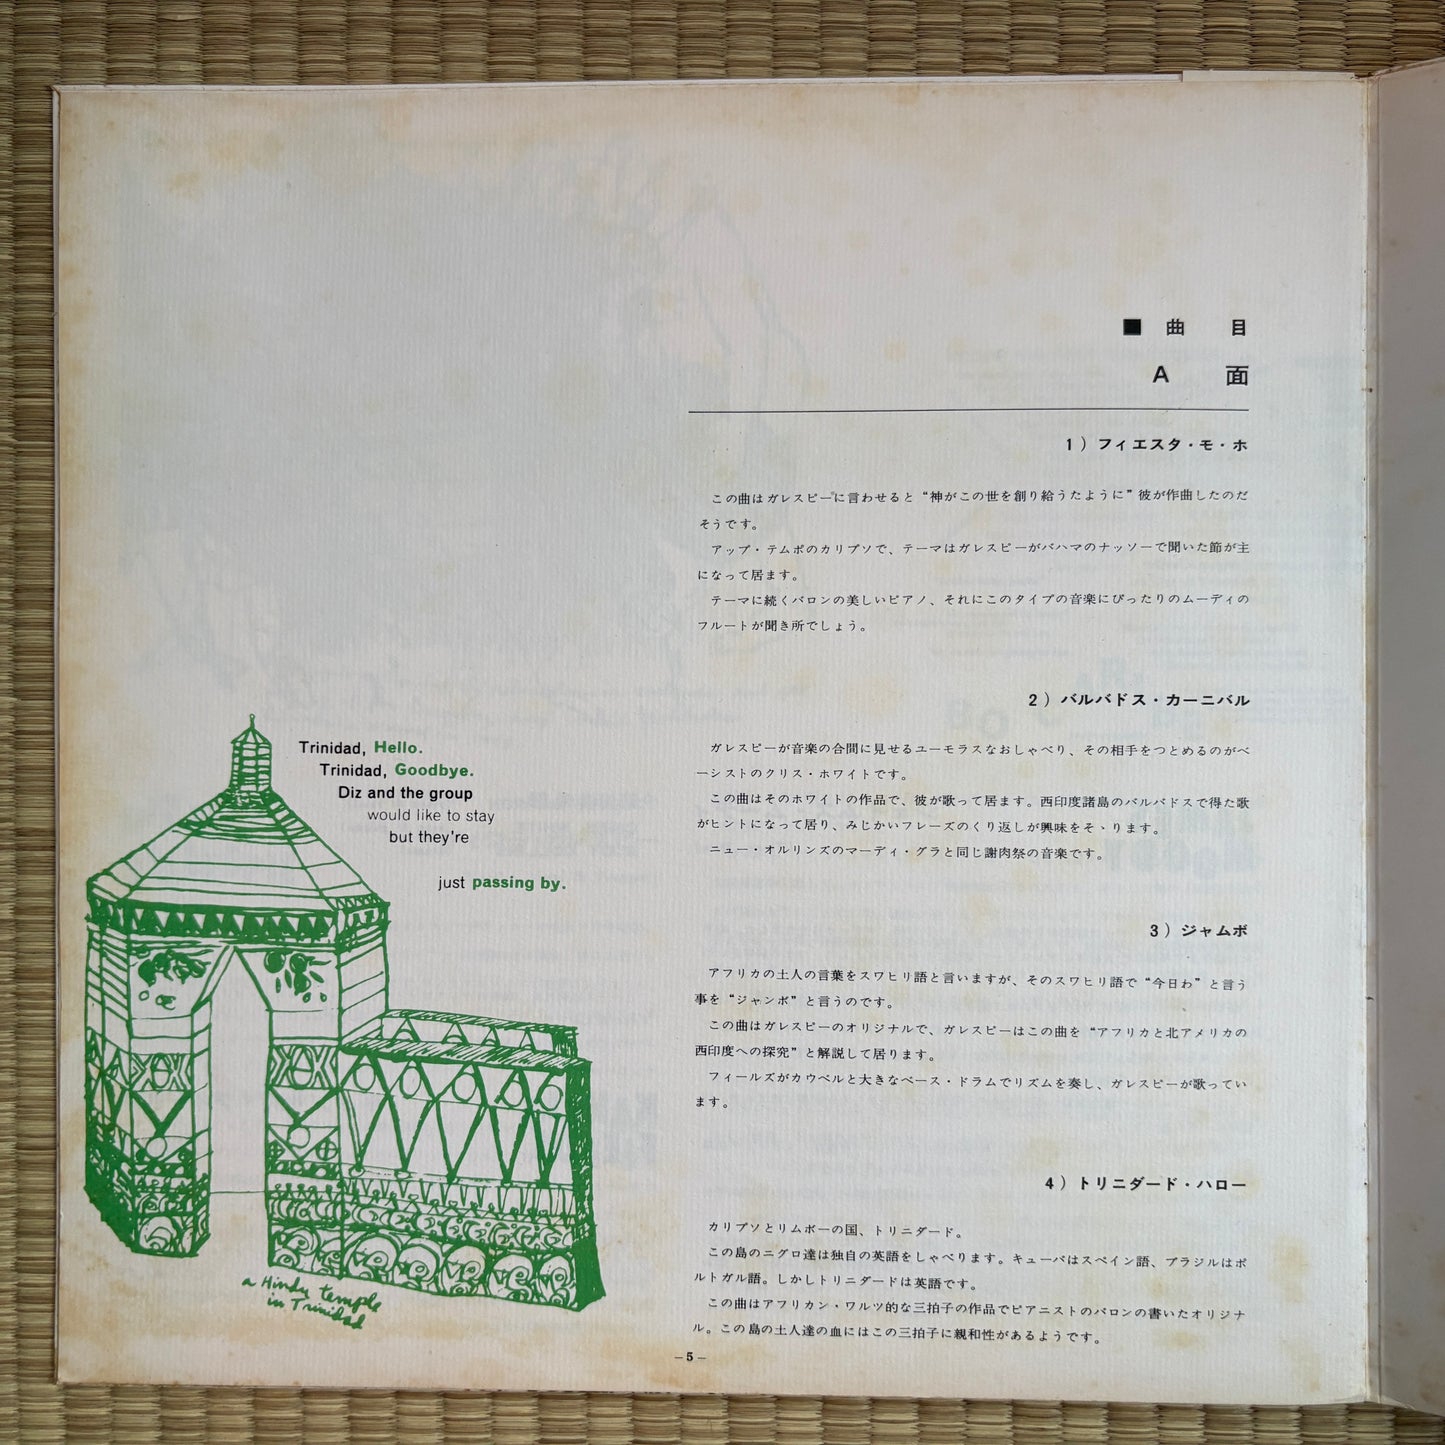 ■ 曲 目
A 面
1）フィエスタ・モ・ホ
この曲はガレスピーに言わせると“神がこの世を創り給うたように”彼が作曲したのだ
そうです。
アップ・テムポのカリプソで、テーマはガレスピーがバハマのナッソーで聞いた節が主
になって居ます。
テーマに続くバロンの美しいピアノ、それにこのタイプの音楽にぴったりのムーディの
フルートが聞き所でしょう。
2）バルバドス・カーニバル
ガレスピーが音楽の合間に見せるユーモラスなおしゃべり、その相手をつとめるのがベ
ーシストのクリス・ホワイトです。
この曲はそのホワイトの作品で、彼が歌って居ます。西印度諸島のバルバドスで得た歌
がヒントになって居り、みじかいフレーズのくり返しが興味をそゝります。
ニュー・オルリンズのマーディ・グラと同じ謝肉祭の音楽です。
3）ジャムボ
アフリカの土人の言葉をスワヒリ語と言いますが、そのスワヒリ語で“今日わ”と言う
事を“ジャンボ”と言うのです。
この曲はガレスピーのオリジナルで、ガレスピーはこの曲を“アフリカと北アメリカの
西印度への探究”と解説して居ります。
フィールズがカウベルと大きなベース・ドラムでリズムを奏し、ガレスピーが歌ってい
ます。
4）トリニダード・ハロー
カリプソとリムボーの国、トリニダード。
この島のニグロ達は独自の英語をしゃべります。キューバはスペイン語、ブラジルはポ
ルトガル語。しかしトリニダードは英語です。
この曲はアフリカン・ワルツ的な三拍子の作品でピアニストのバロンの書いたオリジナ
ル。この島の土人達の血にはこの三拍子に親和性があるようです。
Trinidad, Hello.
Trinidad, Goodbye.
Diz and the group
would like to stay
but they're
just passing by.
a Hindu temple
in Trinidad
－5－